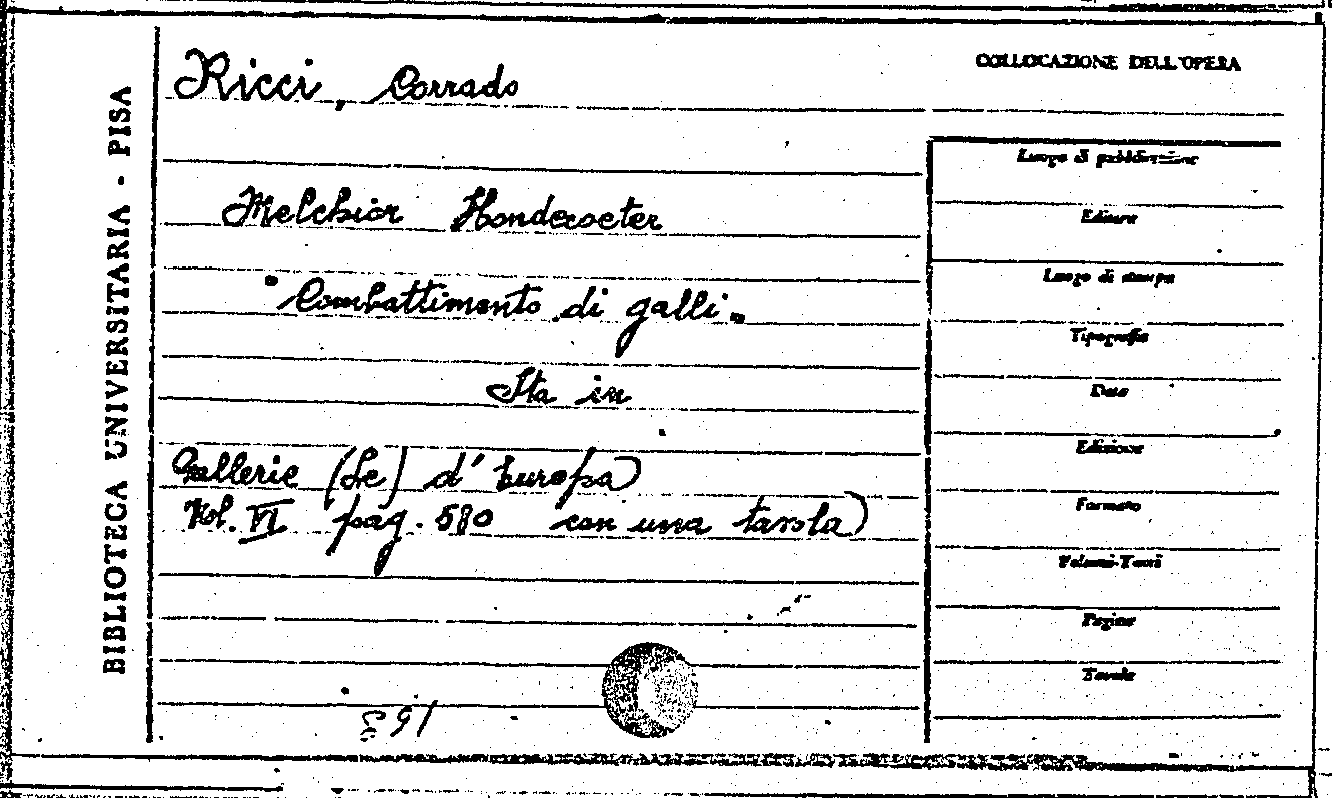 BIBLIOTECA UNIVERSITARIA - PISA
Ricci, Corrado
Melchior Hondecoeter
"Combattimento di galli"
Sta in
Gallerie (Le) d'Europa)
Vol. VI pag. 580 con una tavola)
COLLOCAZIONE DELL'OPERA
Luogo di pubblicazione
Editore
Luogo di stampa
Tipografia
Data
Edizione
Formato
Volumi-Tomi
Pagine
Tavole